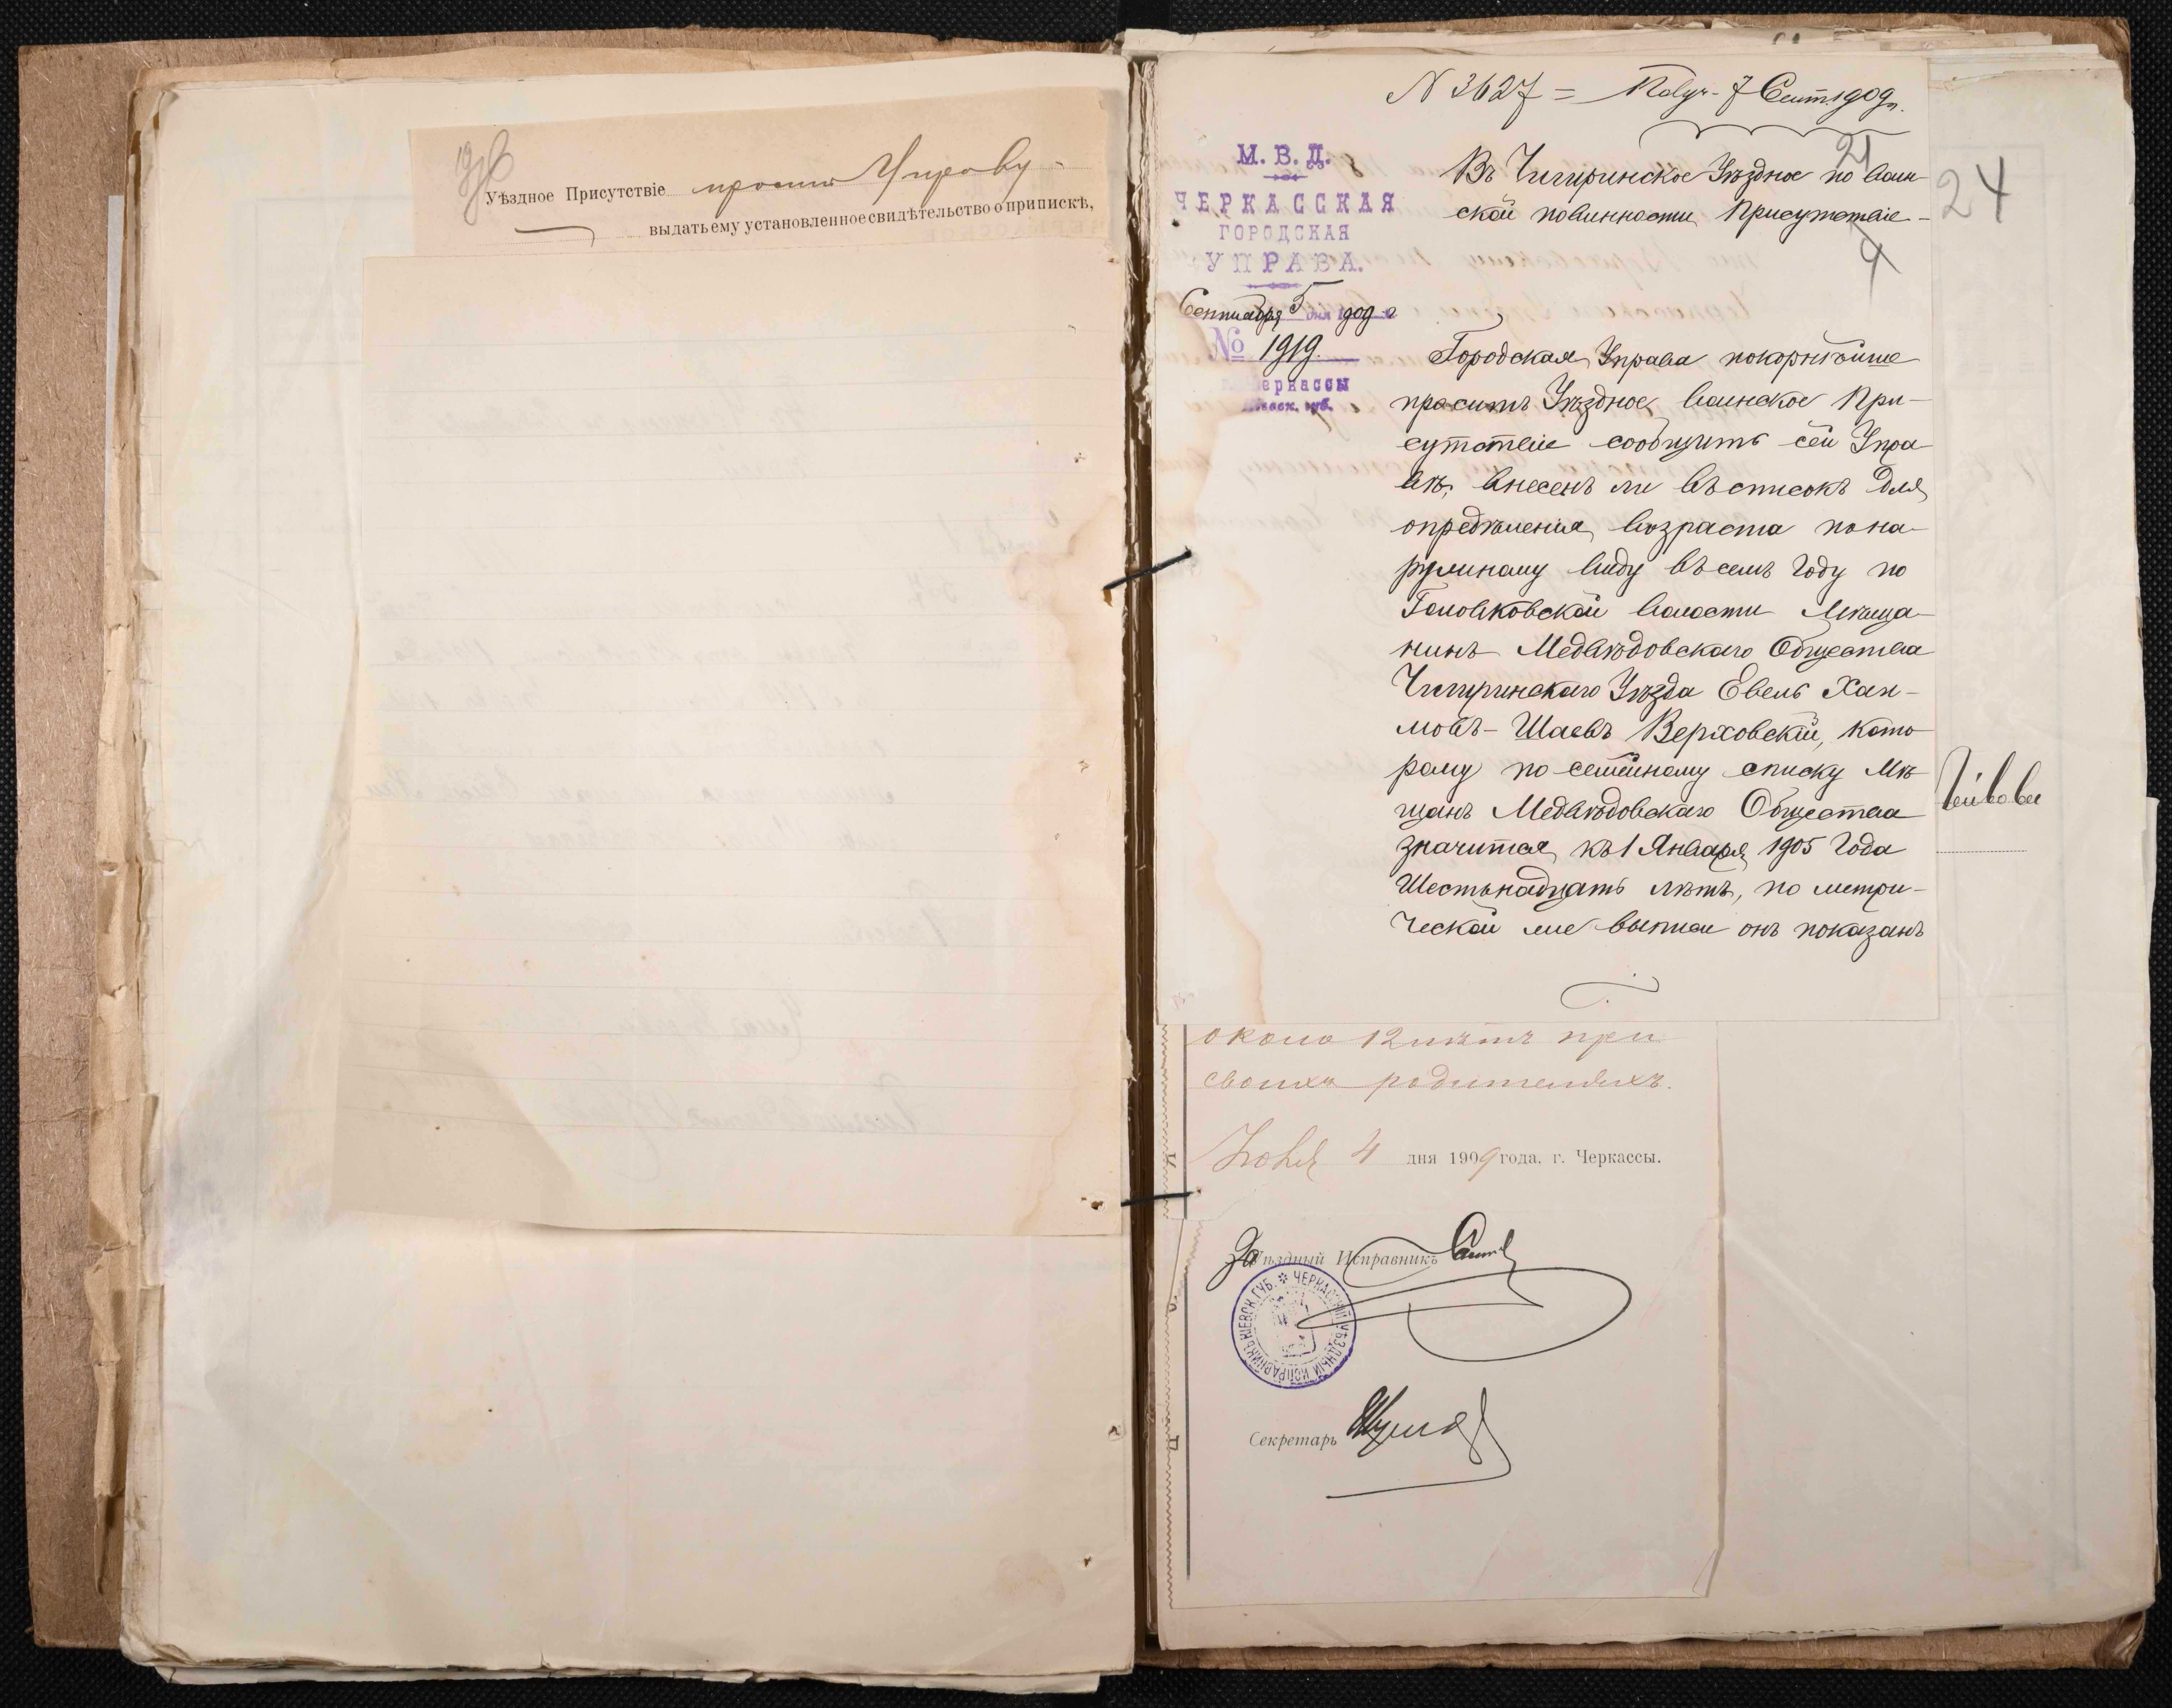 Уѣздное Присутствіе проситъ Управу
выдать ему установленное свидѣтельство о припискѣ,
N 3627 = Получ. 7 Сент. 1909 г.
21
24
4
М. В. Д.
ЧЕРКАССКАЯ
ГОРОДСКАЯ
УПРАВА.
Сентября 5 дня 1909 г
№ 1919.
г. Черкассы
Кіевск. губ.
Въ Чигиринское Уѣздное по воин-
ской повинности Присутствіе
Городская Управа покорнѣйше
проситъ Уѣздное воинское При-
сутствіе сообщить сей Упра-
вѣ, внесенъ ли въ списокъ для
опредѣленія возраста по на-
ружному виду въ семъ году по
Головковской волости мѣща-
нинъ Медвѣдовскаго Общества
Чигиринскаго Уѣзда Евель Хаи-
мовъ-Шаевъ Верховскій, кото
рому по семейному списку мѣ
щанъ Медвѣдовскаго Общества
значится къ 1 Января 1905 года
шестьнадцать лѣтъ, по метри-
ческой же выписи онъ показанъ
около 12 лѣтъ при
своихъ родителяхъ.
4 дня 1909 года, г. Черкассы.
За Уѣздный Исправникъ
КІЕВСК. ГУБ. * ЧЕРКАССКІЙ УѢЗДНЫЙ ИСПРАВНИКЪ
Секретарь